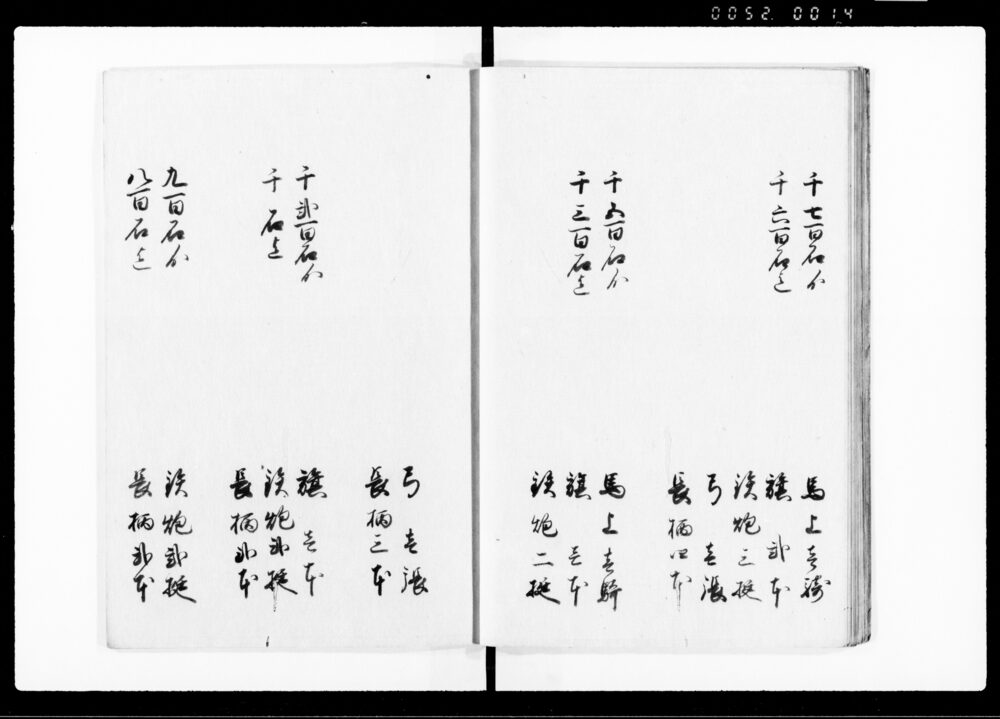 0052. 0014
千七百石ゟ
千六百石迄
馬上壱騎
旗弐本
鉄炮三挺
弓壱張
長柄四本
千五百石ゟ
千三百石迄
馬上壱騎
旗壱本
鉄炮二挺
弓壱張
長柄三本
千弐百石ゟ
千石迄
旗壱本
鉄炮弐挺
長柄弐本
九百石ゟ
八百石迄
鉄炮弐挺
長柄弐本